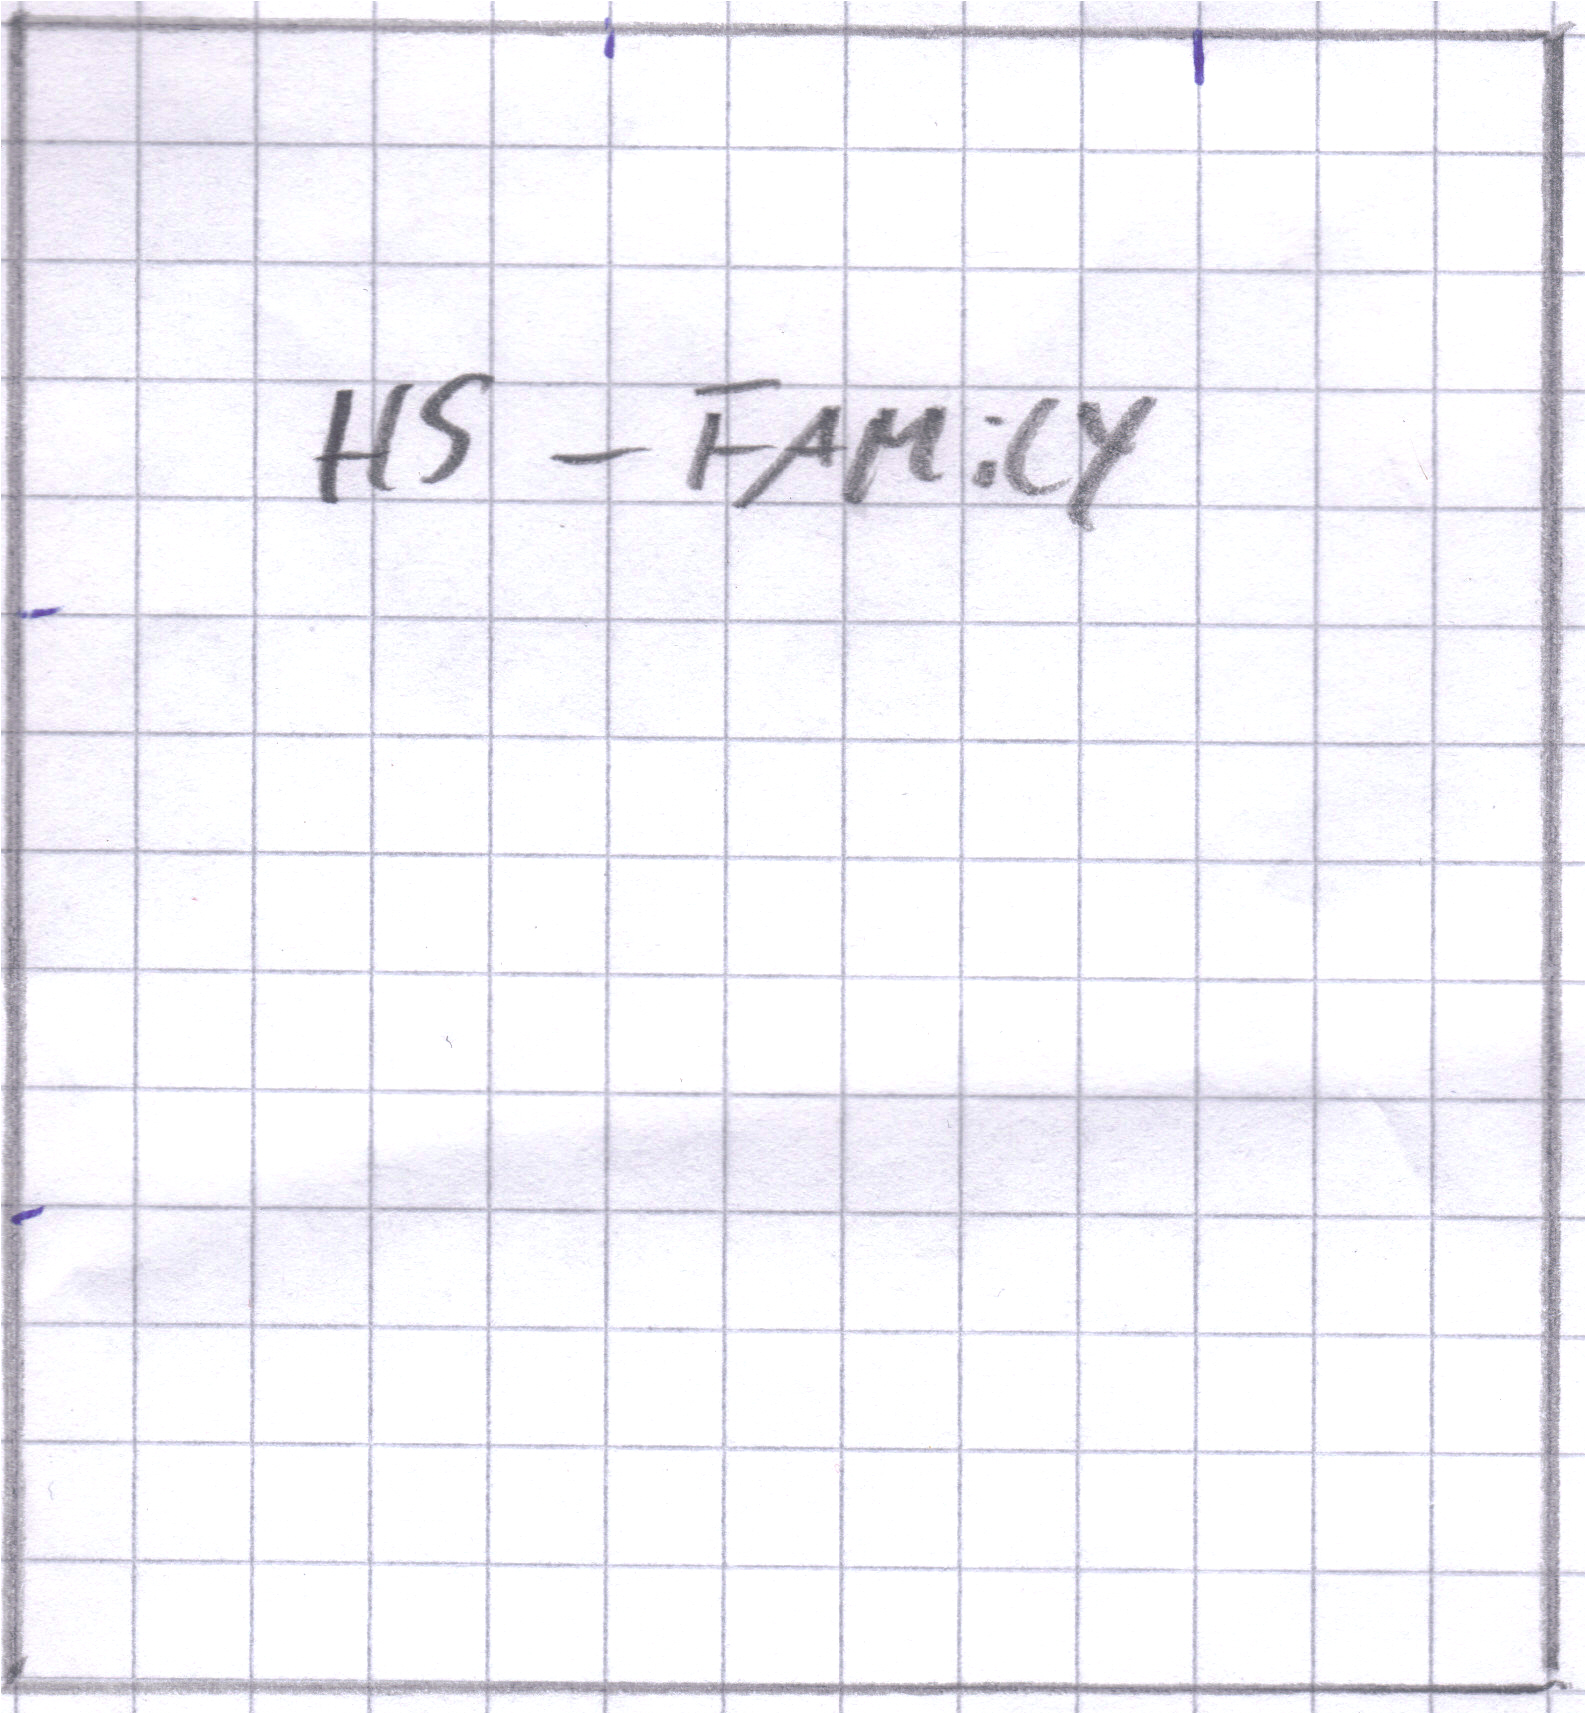 HS - FAMiLY